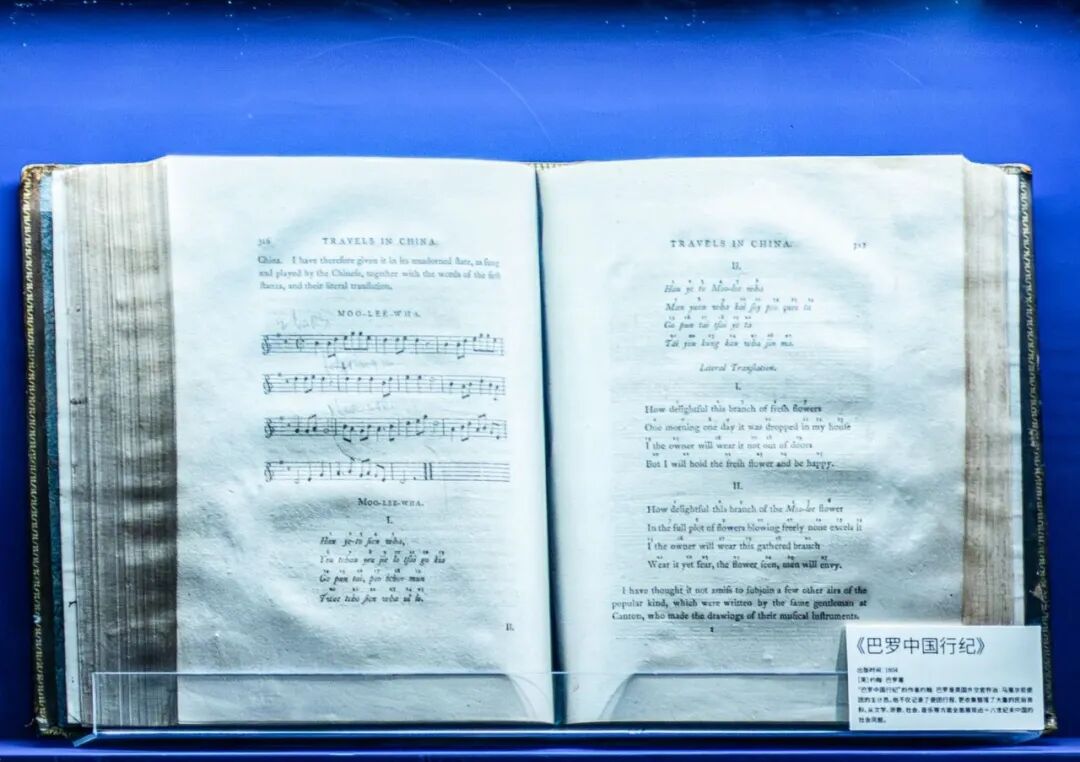 316 TRAVELS IN CHINA.
China. I have therefore given it in its unadorned ſtate, as ſung
and played by the Chineſe, together with the words of the firſt
ſtanza, and their literal tranſlation.
MOO-LEE-WHA.
MOO-LEE-WHA.
I.
Hau ye-to ſien wha,
Yeu tchau yeu jie lo tſai go kia
Go pun tai, poo
Tuee tcho ſien wha ul lo.
II.
TRAVELS IN CHINA. 317
II.
Hau ye to Moo-lee wha
Man yuen wha kai ſoy poo quee ta
Go pun tai tſai ye ta
Tai you kung kan wha jin ma.
Literal Tranſlation.
I.
How delightful this branch of freſh flowers
One morning one day it was dropped in my houſe
I the owner will wear it not out of doors
But I will hold the freſh flower and be happy.
II.
How delightful this branch of the Moo-lee flower
In the full plot of flowers blowing freely none excels it
I the owner will wear this gathered branch
Wear it yet fear, the flower ſeen, men will envy.
I have thought it not amiſs to ſubjoin a few other airs of the
popular kind, which were written by the ſame gentleman at
Canton, who made the drawings of their muſical inſtruments.
《巴罗中国行纪》
出版时间：1804
[英]约翰·巴罗著
"巴罗中国行纪"的作者约翰·巴罗是英国外交官乔治·马戛尔尼使
团的主计员。他不仅记录了使团行程，更收集整理了大量的民俗资
料，从文学、
社会风貌。